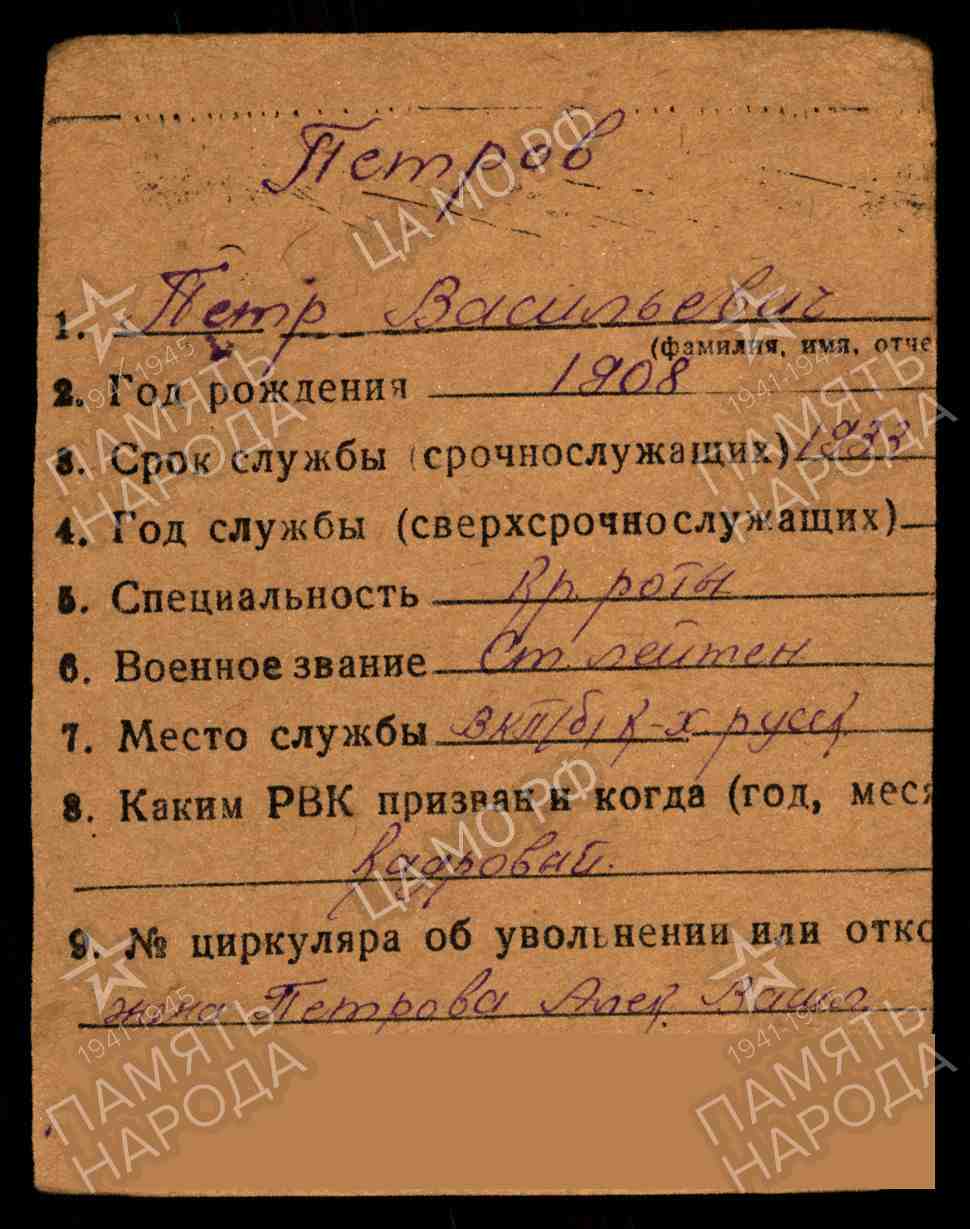 Петров
1. Петр Васильевич
(фамилия, имя, отче
2. Год рождения 1908
3. Срок службы (срочнослужащих) 1933
4. Год службы (сверхсрочнослужащих)
5. Специальность Кр. роты
6. Военное звание Ст. лейтен
7. Место службы ВКП(б) к-х русск
8. Каким РВК призван и когда (год, меся
Кадровый.
9. № циркуляра об увольнении или отко
жена Петрова Алек.
ЦА МО РФ
1941-1945
ПАМЯТЬ
НАРОДА
1941-1945
ПАМЯТЬ
НАРОДА
ЦА МО РФ
1941-1945
ПАМЯТЬ
НАРОДА
1941-1945
ПАМЯТЬ
НАРОДА